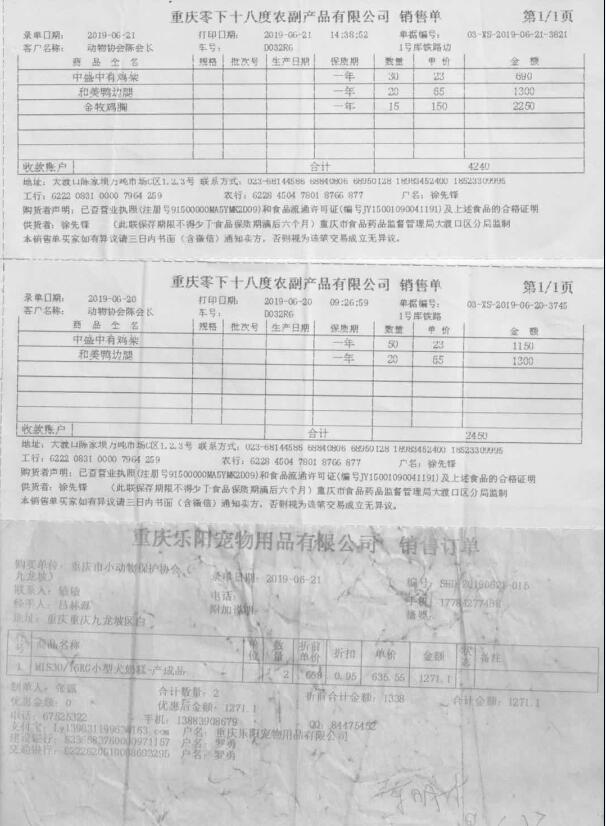 重庆零下十八度农副产品有限公司 销售单 第1/1页
录单日期: 2019-06-21 打印日期: 2019-06-21 14:38:52 单据编号: 03-XS-2019-06-21-3821
客户名称: 动物协会陈会长 车号: D032R6 1号库铁路边
商 品 全 名 规格 批次号 生产日期 保质期 数量 单 价 金 额
中盛中有鸡架 一年 30 23 690
和美鸭边腿 一年 20 65 1300
金牧鸡胸 一年 15 150 2250
收款账户 合计 4240
地址: 大渡口陈家坝万吨市场C区1.2.3号 联系方式: 023-68144586 68840806 68950128 18983452400 18523309995
工行: 6222 0831 0000 7964 259 农行: 6228 4504 7801 8766 877 户名: 徐先锋
购货者声明: 已查营业执照(注册号91500000MA5YMK2D09)和食品流通许可证(编号JY15001090041191)及上述食品的合格证明
供货者: 徐先锋 (此联保存期限不得少于食品保质期满后六个月) 重庆市食品药品监督管理局大渡口区分局监制
本销售单买家如有异议请三日内书面(含微信)通知卖方, 否则视为该笔交易成立无异议。
重庆零下十八度农副产品有限公司 销售单 第1/1页
录单日期: 2019-06-20 打印日期: 2019-06-20 09:26:59 单据编号: 03-XS-2019-06-20-3745
客户名称: 动物协会陈会长 车号: D032R6 1号库铁路
商 品 全 名 规格 批次号 生产日期 保质期 数量 单 价 金 额
中盛中有鸡架 一年 50 23 1150
和美鸭边腿 一年 20 65 1300
收款账户 合计 2450
地址: 大渡口陈家坝万吨市场C区1.2.3号 联系方式: 023-68144586 68840806 68950128 18983452400 18523309995
工行: 6222 0831 0000 7964 259 农行: 6228 4504 7801 8766 877 户名: 徐先锋
购货者声明: 已查营业执照(注册号91500000MA5YMK2D09)和食品流通许可证(编号JY15001090041191)及上述食品的合格证明
供货者: 徐先锋 (此联保存期限不得少于食品保质期满后六个月) 重庆市食品药品监督管理局大渡口区分局监制
本销售单买家如有异议请三日内书面(含微信)通知卖方, 否则视为该笔交易成立无异议。
重庆乐阳宠物用品有限公司 销售订单
购买单位: 重庆市小动物保护协会(
九龙坡) 录单日期: 2019-06-21 编号:
联系人: 敏敏 电话: 手机: 17784277488
经手人: 附加说明:
地址: 重庆重庆九龙坡区白
商品名称 单位 数量 折前单价 折扣 单价 金额 状态 备注
1 小型犬奶糕-产成品 2 669 0.95 635.55 1271.1
制单人: 合计数量: 2 折前合计金额: 1338
优惠金额: 0 优惠后金额: 1271.1
电话: 67525322 手机: 13883908679 QQ: 84475452
户名: 重庆乐阳宠物用品有限公司
户名: 罗勇
交通银行: 户名: 罗勇